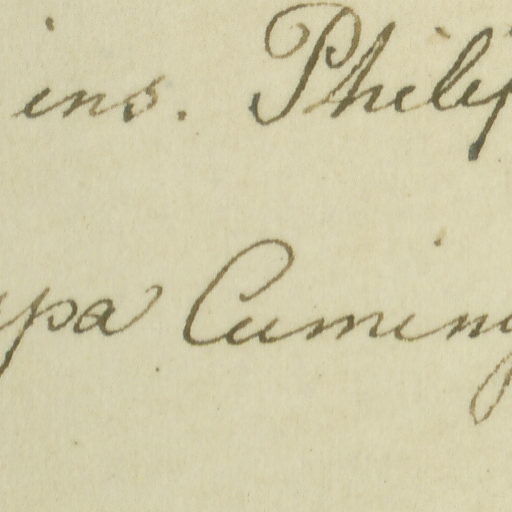 ins. Philip
ppa Cuming